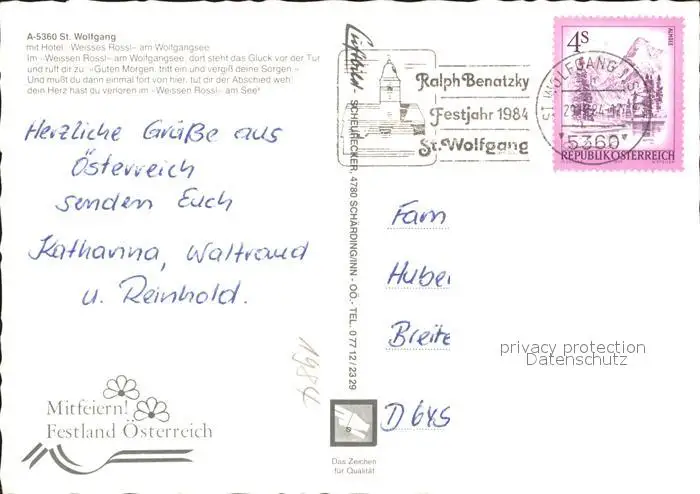 A-5360 St. Wolfgang
mit Hotel »Weisses Rössl« am Wolfgangsee
Im »Weissen Rössl« am Wolfgangsee, dort steht das Glück vor der Tür
und ruft dir zu: »Guten Morgen, tritt ein und vergiß deine Sorgen –
Und mußt du dann einmal fort von hier, tut dir der Abschied weh:
dein Herz hast du verloren im »Weissen Rössl« am See«
Herzliche Grüße aus
Österreich
senden Euch
Katharina, Waltraud
u. Reinhold.
Mitfeiern!
Festland Österreich
Luftbild-
SCHEURECKER, 4780 SCHÄRDING/INN - OÖ. - TEL. 0 77 12 / 23 29
1984
Das Zeichen
für Qualität
Ralph Benatzky
Festjahr 1984
St. Wolfgang
4S
ALMSEE
ST. WOLFGANG
5360
REPUBLIK ÖSTERREICH
Fam
Huber
Breite
D 645
privacy protection
Datenschutz